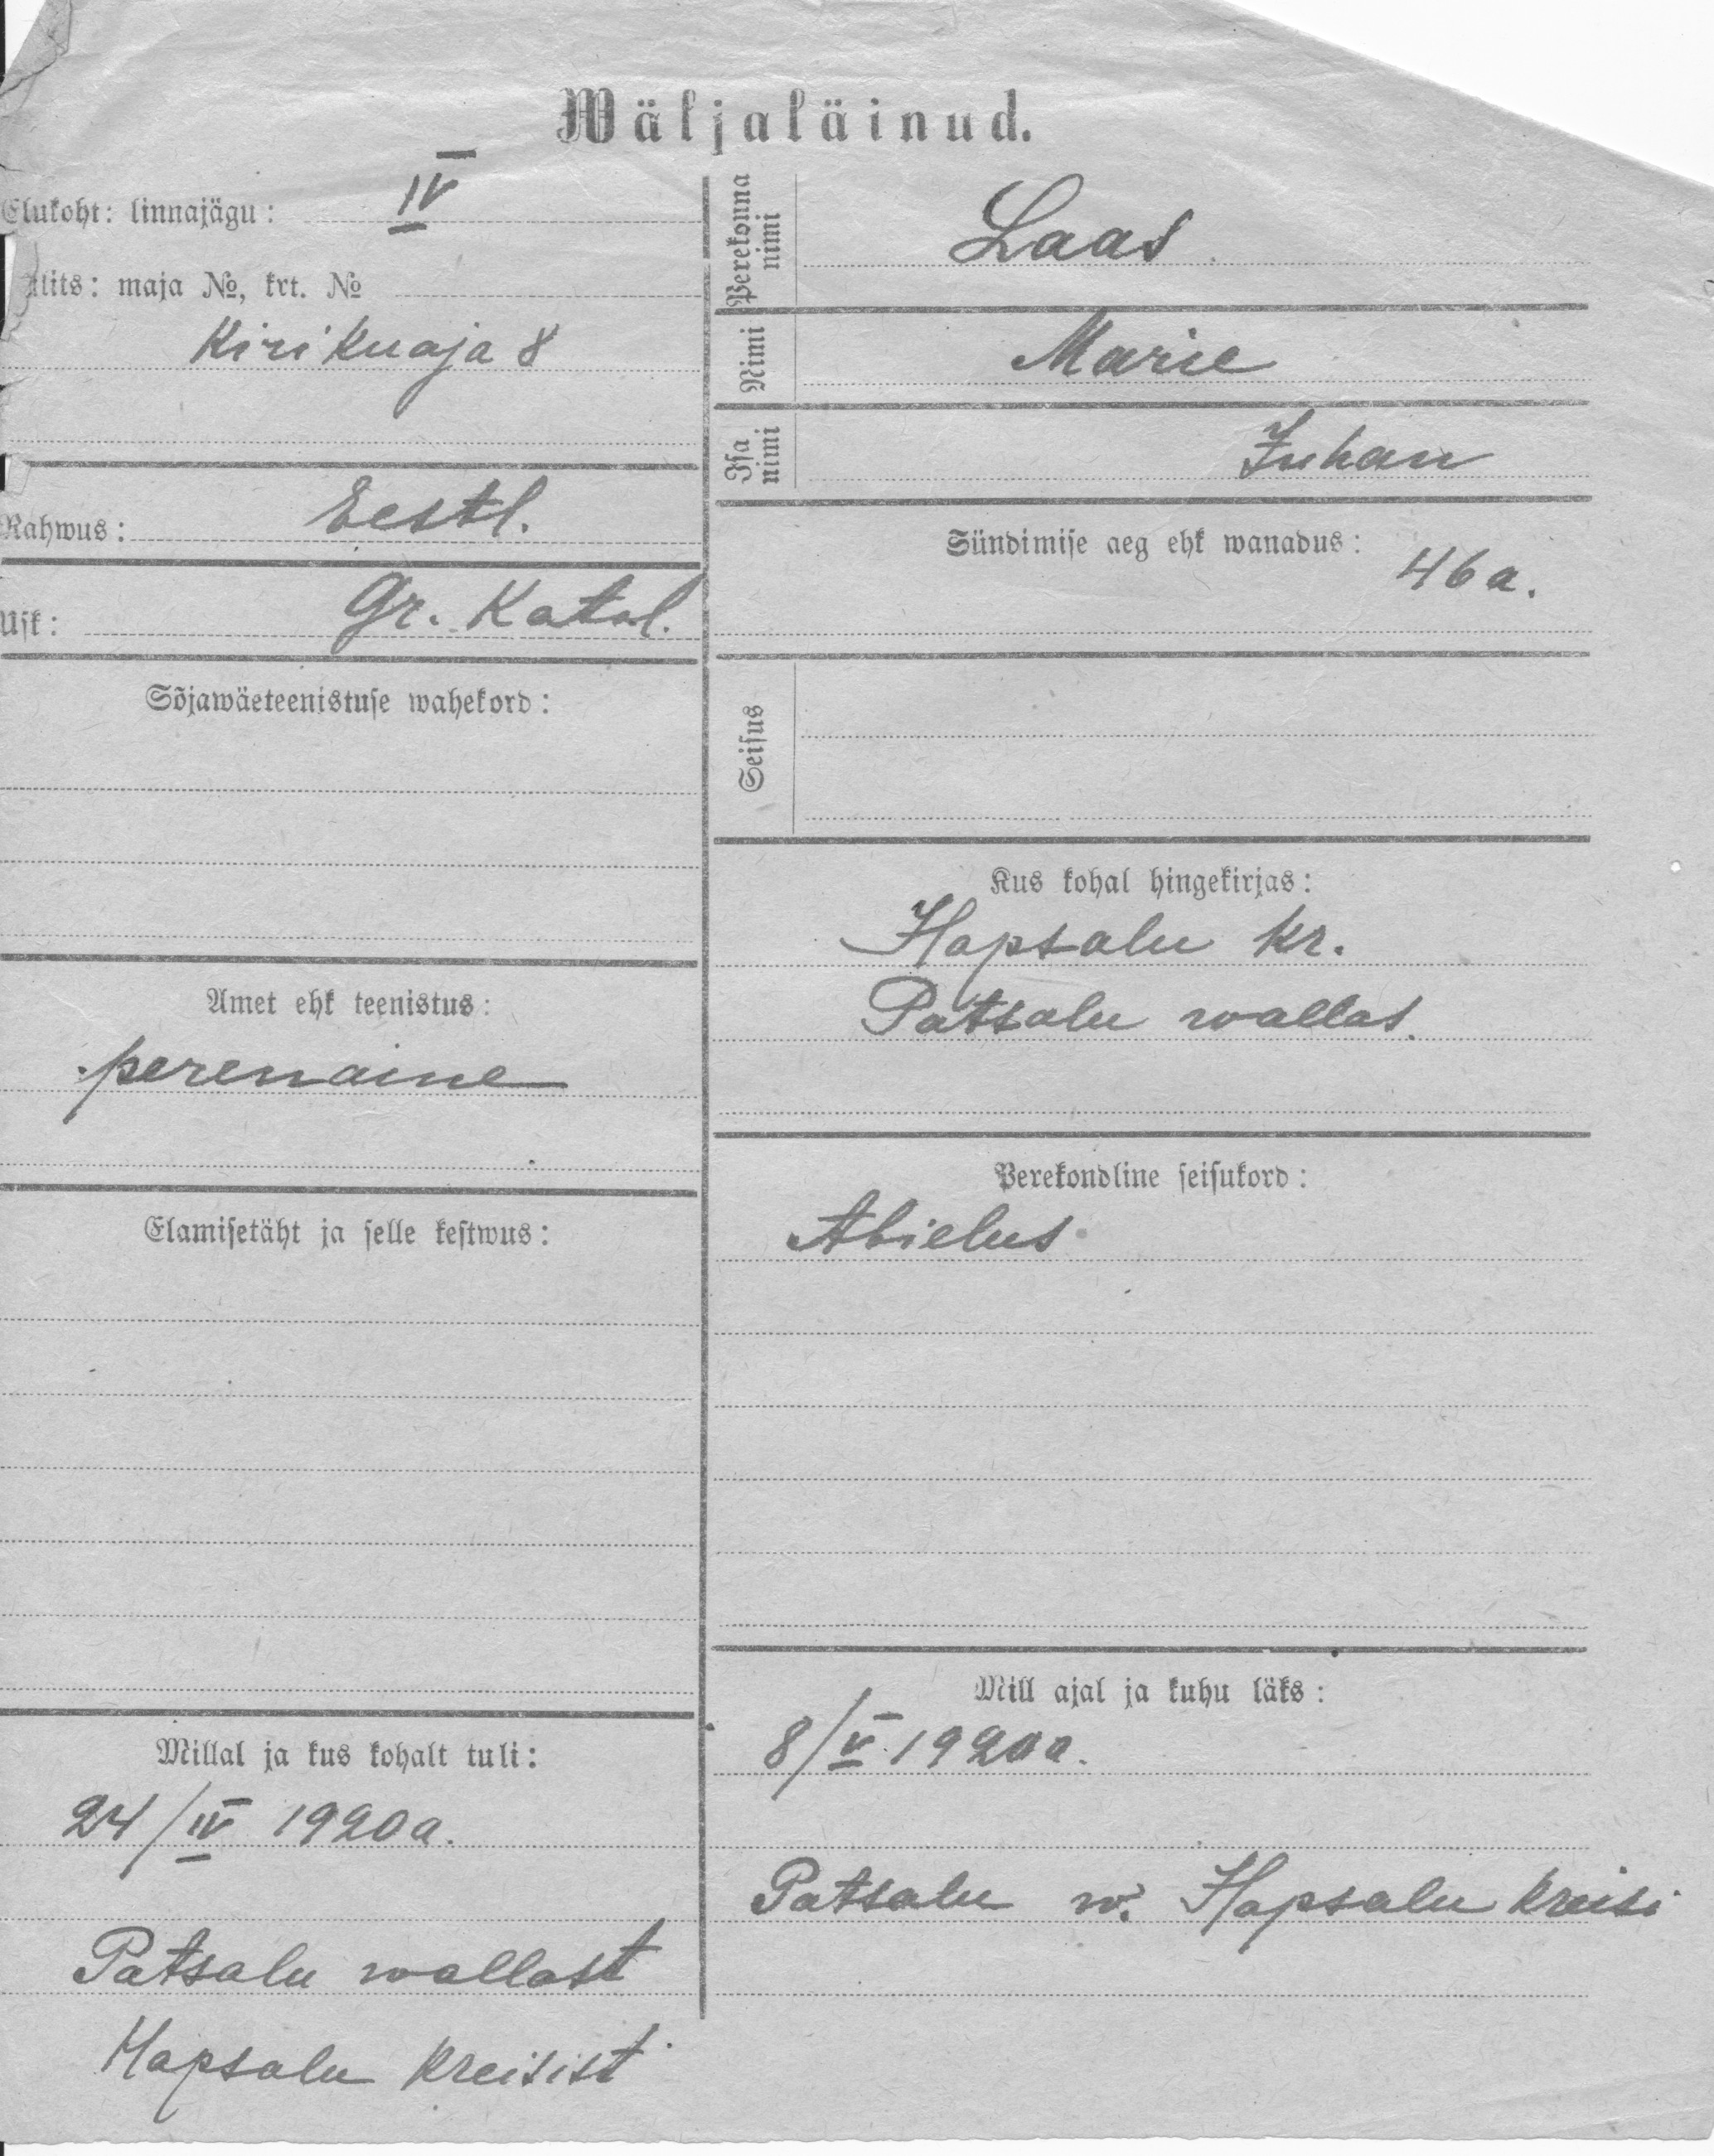 Wäljaläinud.
Elukoht: linnajagu: IV
ulits: maja №, krt. №
Kirikuaja 8
Rahwus: Eestl.
Usk: Gr. Katol.
Sõjawäeteenistuse wahekord:
Amet ehk teenistus:
perenaine
Elamisetäht ja selle kestwus:
Millal ja kus kohalt tuli:
24/IV 1920 a.
Patsalu wallast
Hapsalu kreisist
Perekonna nimi Laas
Nimi Marie
Isa nimi Juhan
Sündimise aeg ehk wanadus: 46 a.
Seisus
Kus kohal hingekirjas:
Hapsalu kr.
Patsalu wallas.
Perekondline seisukord:
Abielus
Mill ajal ja kuhu läks:
8/V 1920 a.
Patsalu w. Hapsalu kreisi